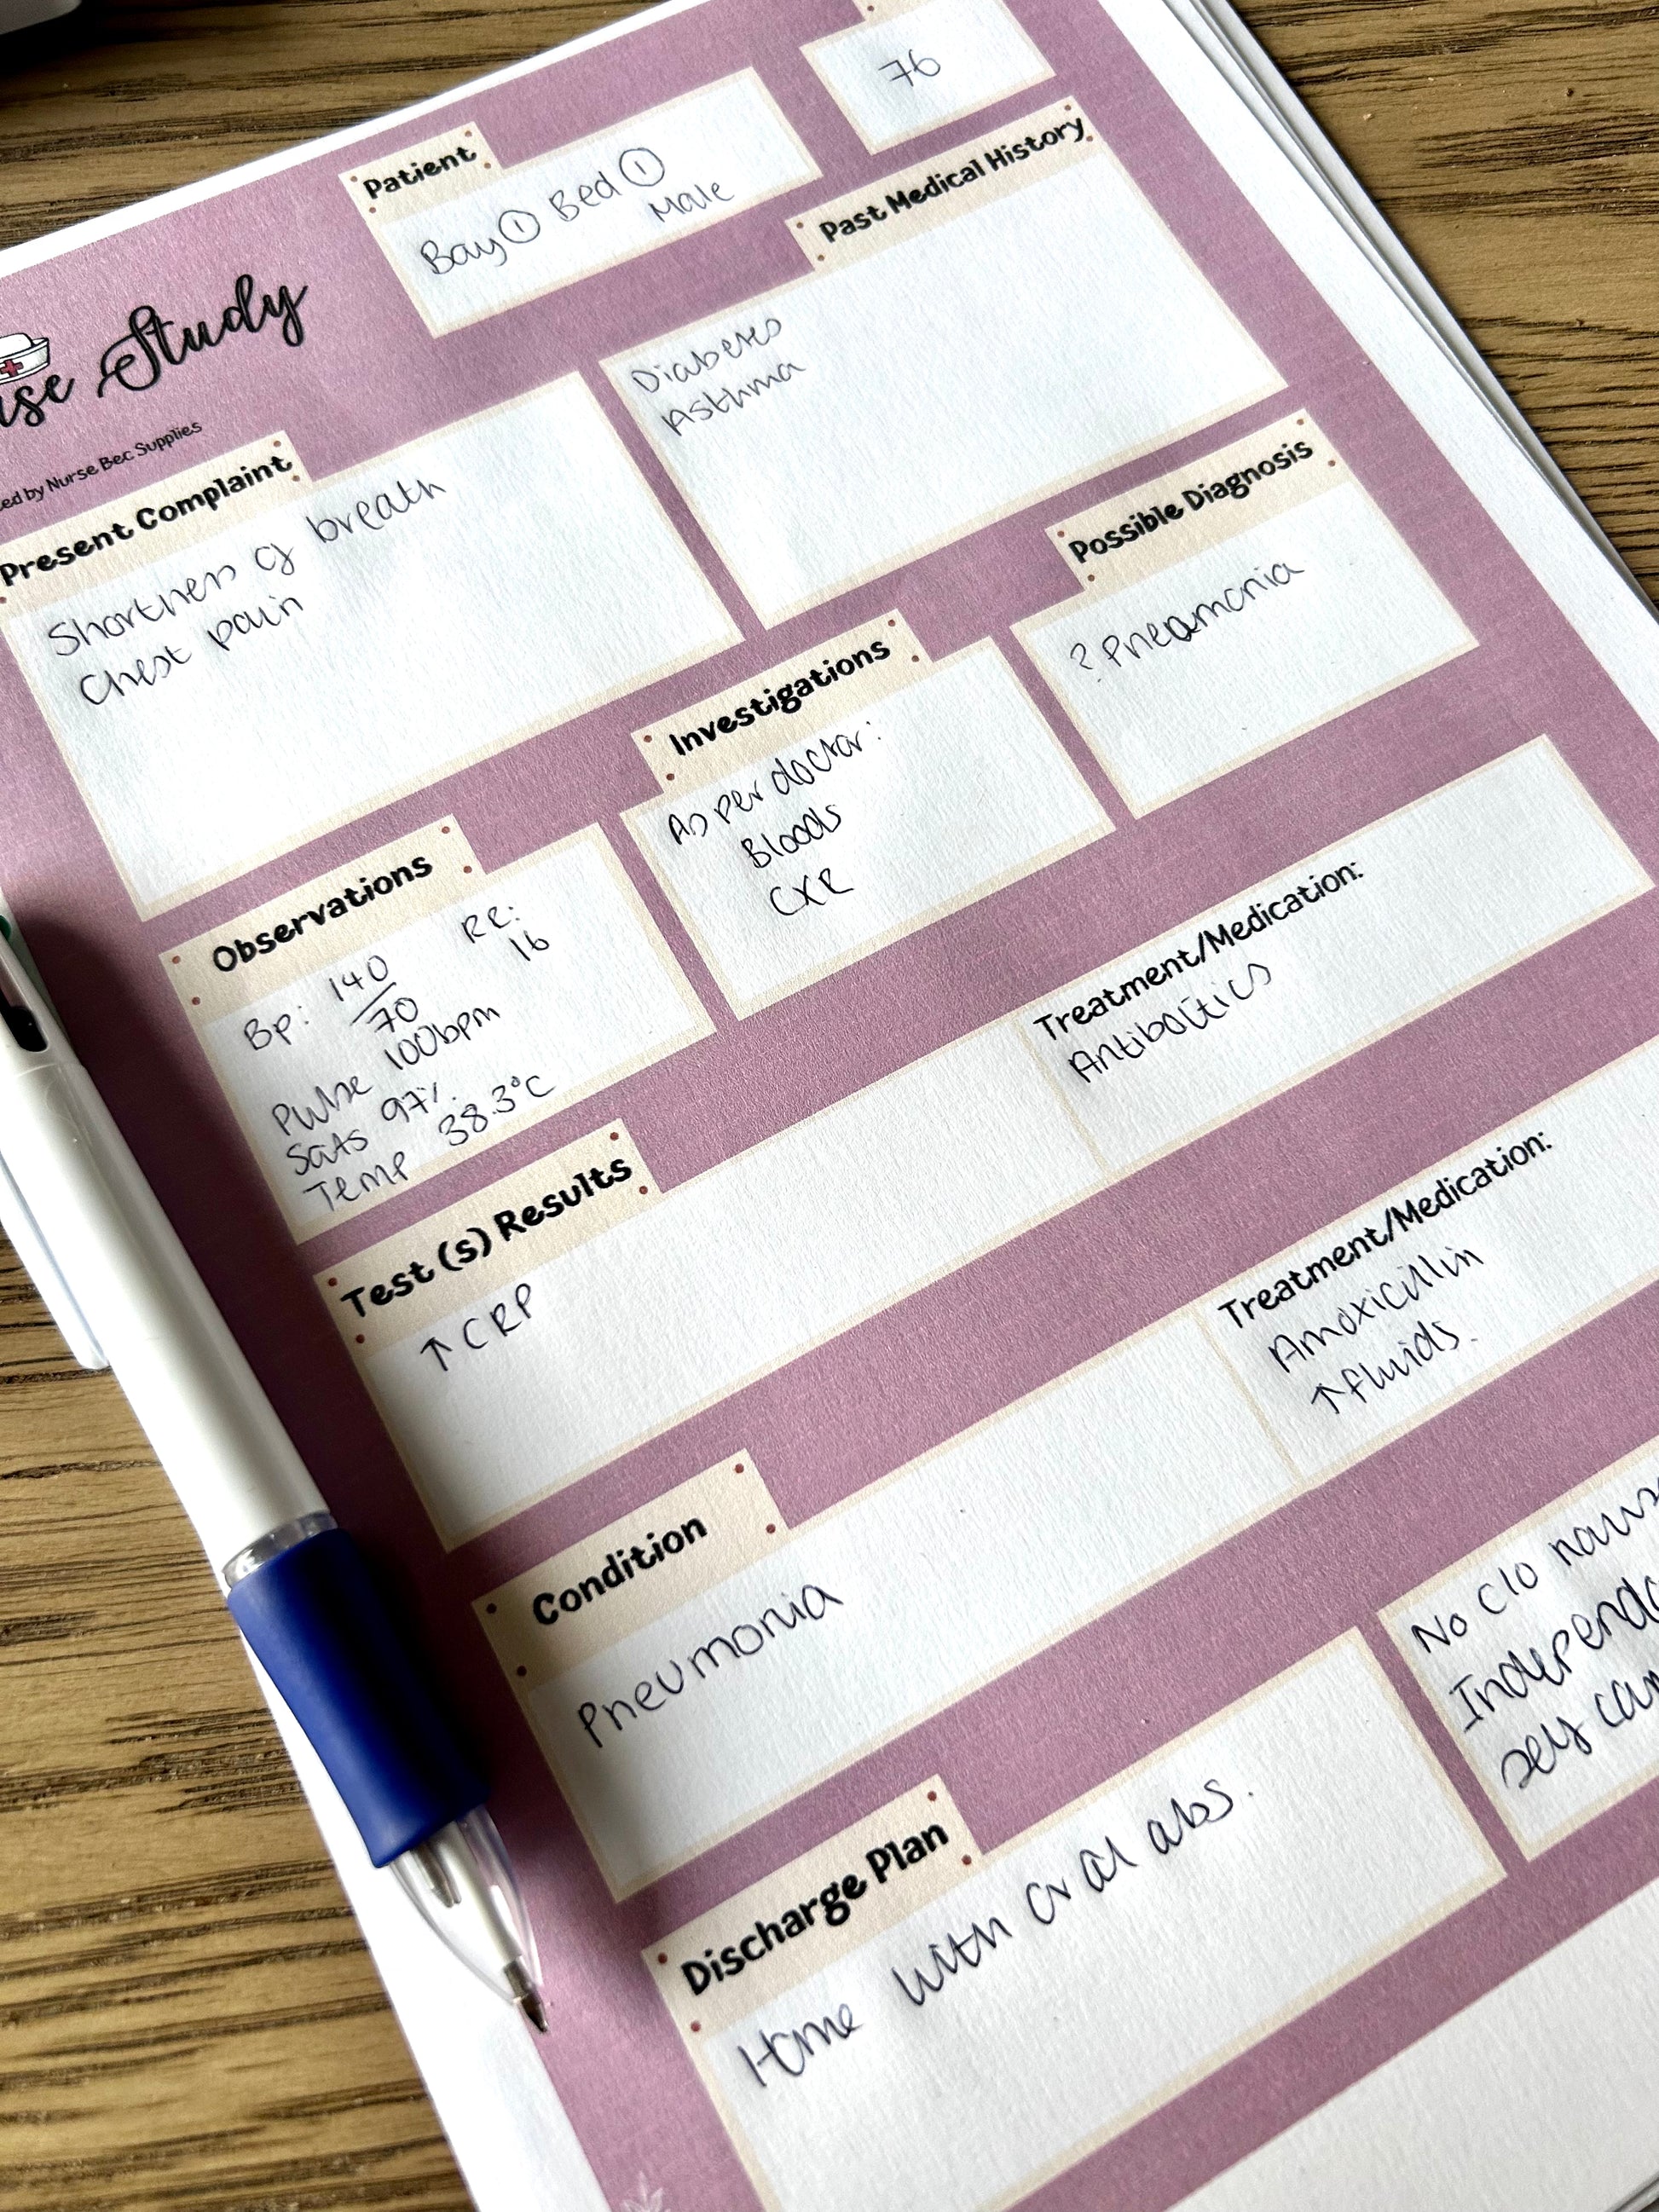 76
Patient
Bay ① Bed ①
Male
Past Medical History
Diabetes
Asthma
Study
by Nurse Bec Supplies
Present Complaint
Shortness of breath
Chest pain
Possible Diagnosis
? Pneumonia
Investigations
As per doctor:
Bloods
CXR
Observations
Bp: 140/70
RR: 16
Pulse 100bpm
Sats 97%
Temp 38.3°C
Treatment/Medication:
Antiboitics
Test (s) Results
↑ CRP
Treatment/Medication:
Amoxicillin
↑ fluids.
Condition
Pneumonia
No C/O
self
Discharge Plan
Home with oral abs.